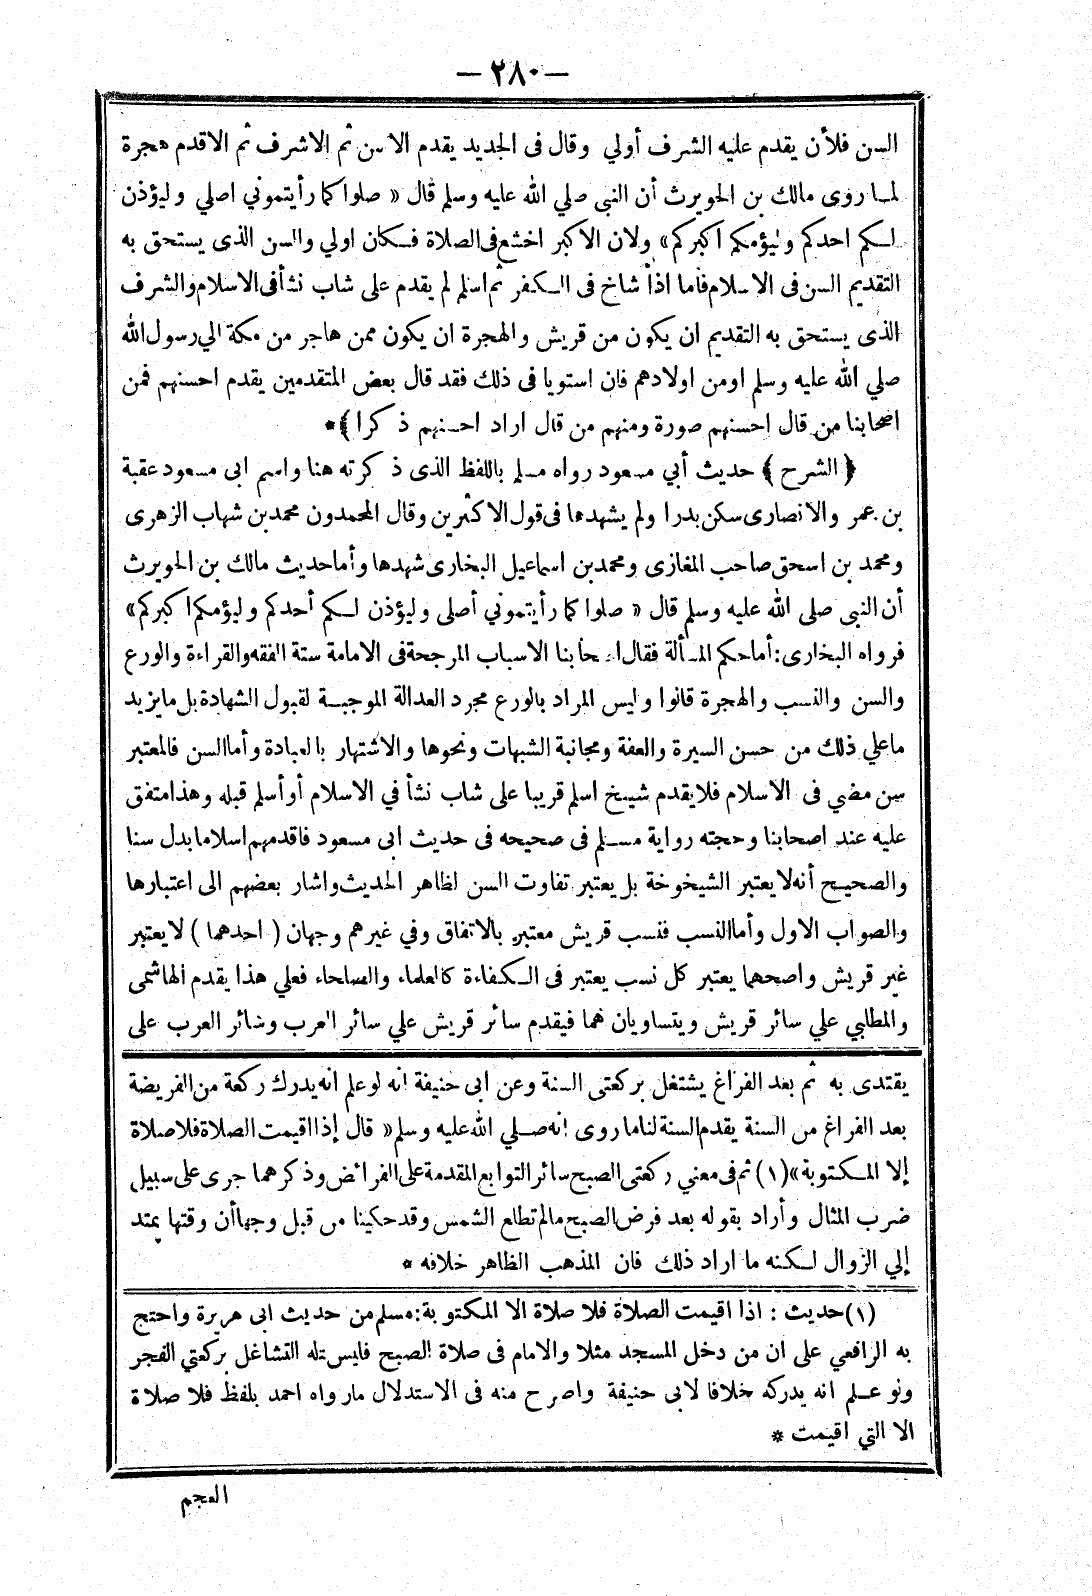 — ٢٨٠ —
السن فلأن يقدم عليه الشرف أولي وقال فى الجديد يقدم الاسن ثم الاشرف ثم الاقدم هجرة
لما روى مالك بن الحويرث أن النبى صلي الله عليه وسلم قال « صلوا كما رأيتموني اصلي وليؤذن
لكم احدكم وليؤمكم اكبركم» ولان الاكبر اخشع فى الصلاة فكان اولي والسن الذى يستحق به
التقديم السن فى الاسلام فاما اذا شاخ فى الكفر ثم اسلم لم يقدم على شاب نشأ فى الاسلام والشرف
الذى يستحق به التقديم ان يكون من قريش والهجرة ان يكون ممن هاجر من مكة الي رسول الله
صلي الله عليه وسلم اومن اولادهم فان استويا فى ذلك فقد قال بعض المتقدمين يقدم احسنهم فمن
اصحابنا من قال احسنهم صورة ومنهم من قال اراد احسنهم ذكرا ﴾*
﴿ الشرح ﴾ حديث أبي مسعود رواه مسلم باللفظ الذى ذكرته هنا واسم ابى مسعود عقبة
بن عمر والانصارى سكن بدرا ولم يشهدها فى قول الاكثرين وقال المحمدون محمد بن شهاب الزهرى
ومحمد بن اسحق صاحب المغازى ومحمد بن اسماعيل البخارى شهدها وأما حديث مالك بن الحويرث
أن النبى صلى الله عليه وسلم قال « صلوا كما رأيتموني أصلى وليؤذن لكم أحدكم وليؤمكم اكبركم»
فرواه البخارى: أما حكم المسألة فقال اصحابنا الاسباب المرجحة فى الامامة ستة الفقه والقراءة والورع
والسن والنسب والهجرة قالوا وليس المراد بالورع مجرد العدالة الموجبة لقبول الشهادة بل مايزيد
ماعلي ذلك من حسن السيرة والعفة ومجانبة الشبهات ونحوها والاشتهار بالعبادة وأما السن فالمعتبر
سن مضي فى الاسلام فلا يقدم شيخ اسلم قريبا على شاب نشأ في الاسلام أو أسلم قبله وهذا متفق
عليه عند اصحابنا وحجته رواية مسلم فى صحيحه فى حديث ابى مسعود فاقدمهم اسلاما بدل سنا
والصحيح أنه لا يعتبر الشيخوخة بل يعتبر تفاوت السن لظاهر الحديث واشار بعضهم الى اعتبارها
والصواب الاول وأما النسب فنسب قريش معتبر بالاتفاق وفي غيرهم وجهان ( احدهما ) لا يعتبر
غير قريش واصحهما يعتبر كل نسب يعتبر فى الكفاءة كالعلماء والصلحاء فعلي هذا يقدم الهاشمى
والمطلبي علي سائر قريش ويتساويان هما فيقدم سائر قريش علي سائر العرب وسائر العرب على
يقتدى به ثم بعد الفراغ يشتغل بركعتى السنة وعن ابى حنيفة انه لو علم انه يدرك ركعة من الفريضة
بعد الفراغ من السنة يقدم السنة لنا ما روى انه صلي الله عليه وسلم « قال إذا اقيمت الصلاة فلا صلاة
إلا المكتوبة» (١) ثم فى معني ركعتى الصبح سائر التوابع المقدمة على الفرائض وذكرهما جرى على سبيل
ضرب المثال وأراد بقوله بعد فرض الصبح مالم تطلع الشمس وقد حكينا من قبل وجها أن وقتها يمتد
إلي الزوال لكنه ما اراد ذلك فان المذهب الظاهر خلافه *
(١) حديث : اذا اقيمت الصلاة فلا صلاة الا المكتوبة: مسلم من حديث ابى هريرة واحتج
به الرافعي على ان من دخل المسجد مثلا والامام فى صلاة الصبح فليس له التشاغل بركعتي الفجر
ولو علم انه يدركه خلافا لابى حنيفة واصرح منه فى الاستدلال مارواه احمد بلفظ فلا صلاة
الا التي اقيمت *
العجم